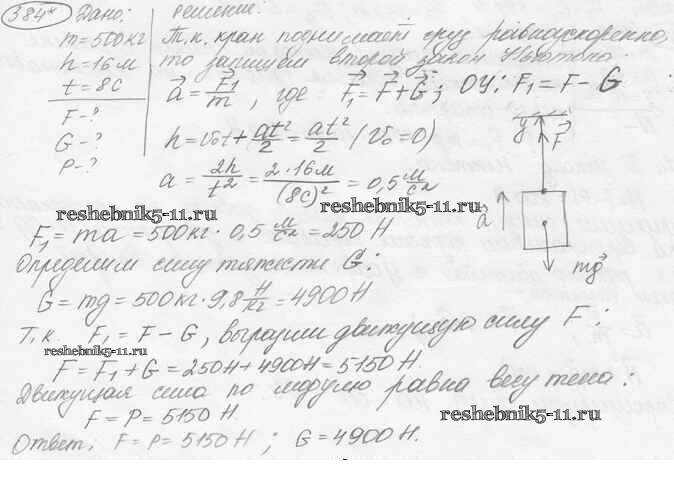 384* Дано: Решение:
m = 500 кг Т.к. кран поднимает груз равноускоренно,
h = 16 м то запишем второй закон Ньютона:
t = 8 с a⃗ = F⃗₁/m, где F⃗₁ = F⃗ + G⃗; ОУ: F₁ = F − G
F − ?
G − ?
P − ?
h = v₀t + at²/2 = at²/2 (v₀ = 0)
a = 2h/t² = 2·16 м/(8 с)² = 0,5 м/с²
y
F⃗
a⃗
mg⃗
reshebnik5-11.ru
reshebnik5-11.ru
F₁ = ma = 500 кг · 0,5 м/с² = 250 Н
Определим силу тяжести G⃗:
G = mg = 500 кг · 9,8 Н/кг = 4900 Н
Т.к. F₁ = F − G, выразим движущую силу F:
reshebnik5-11.ru
F = F₁ + G = 250 Н + 4900 Н = 5150 Н.
Движущая сила по модулю равна весу тела:
F = P = 5150 Н.
reshebnik5-11.ru
Ответ: F = P = 5150 Н; G = 4900 Н.